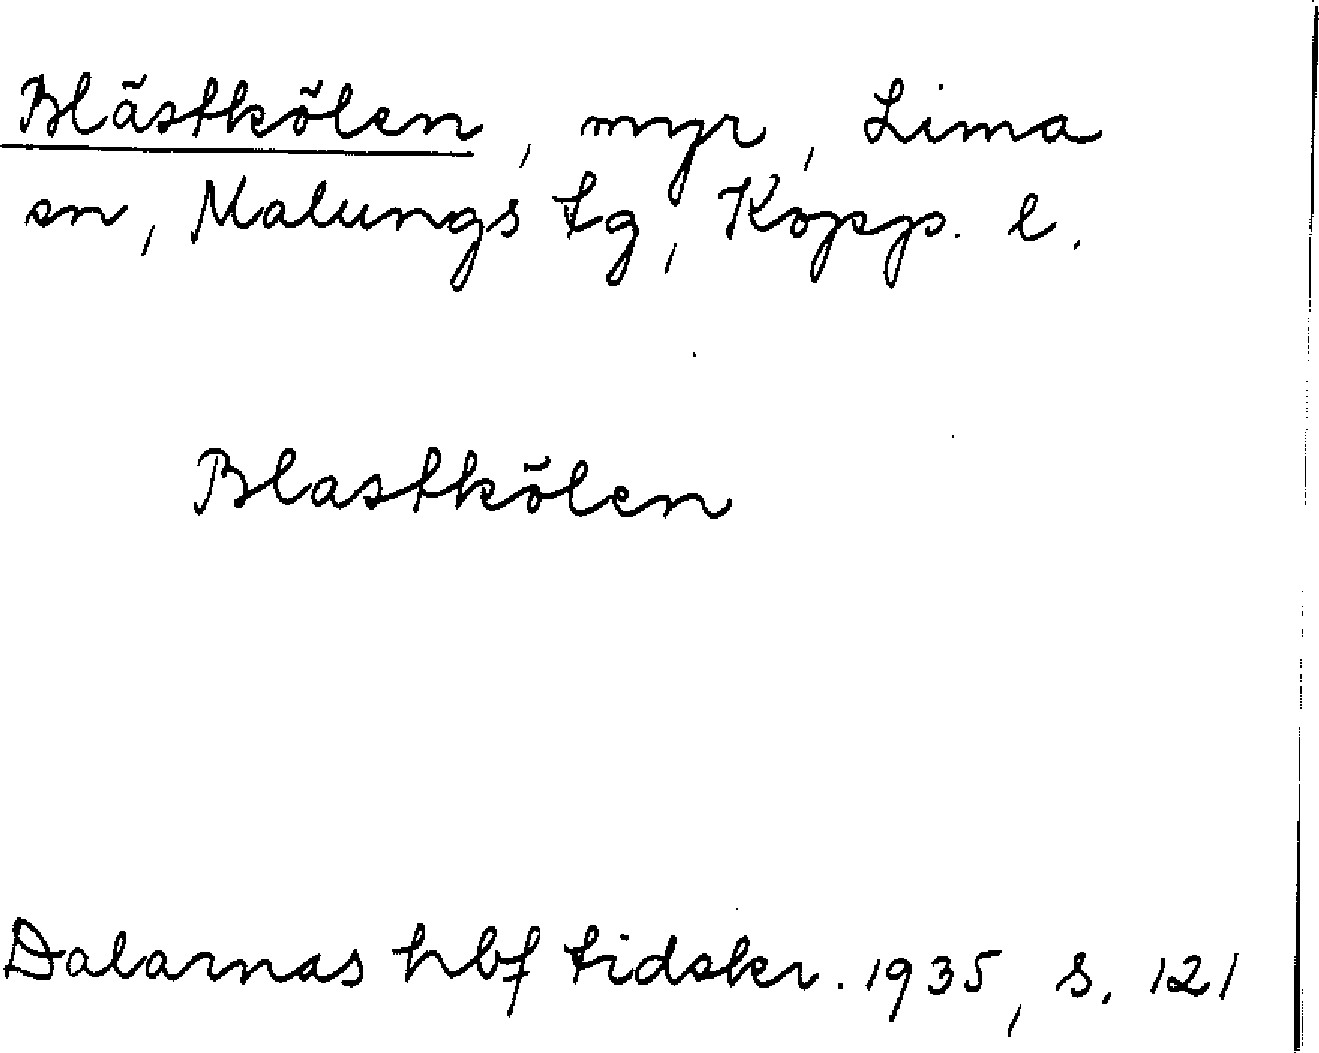 Blästkölen, myr, Lima
sn, Malungs tg, Kopp. l.
Blastkölen
Dalarnas hbf tidskr. 1935, s. 121